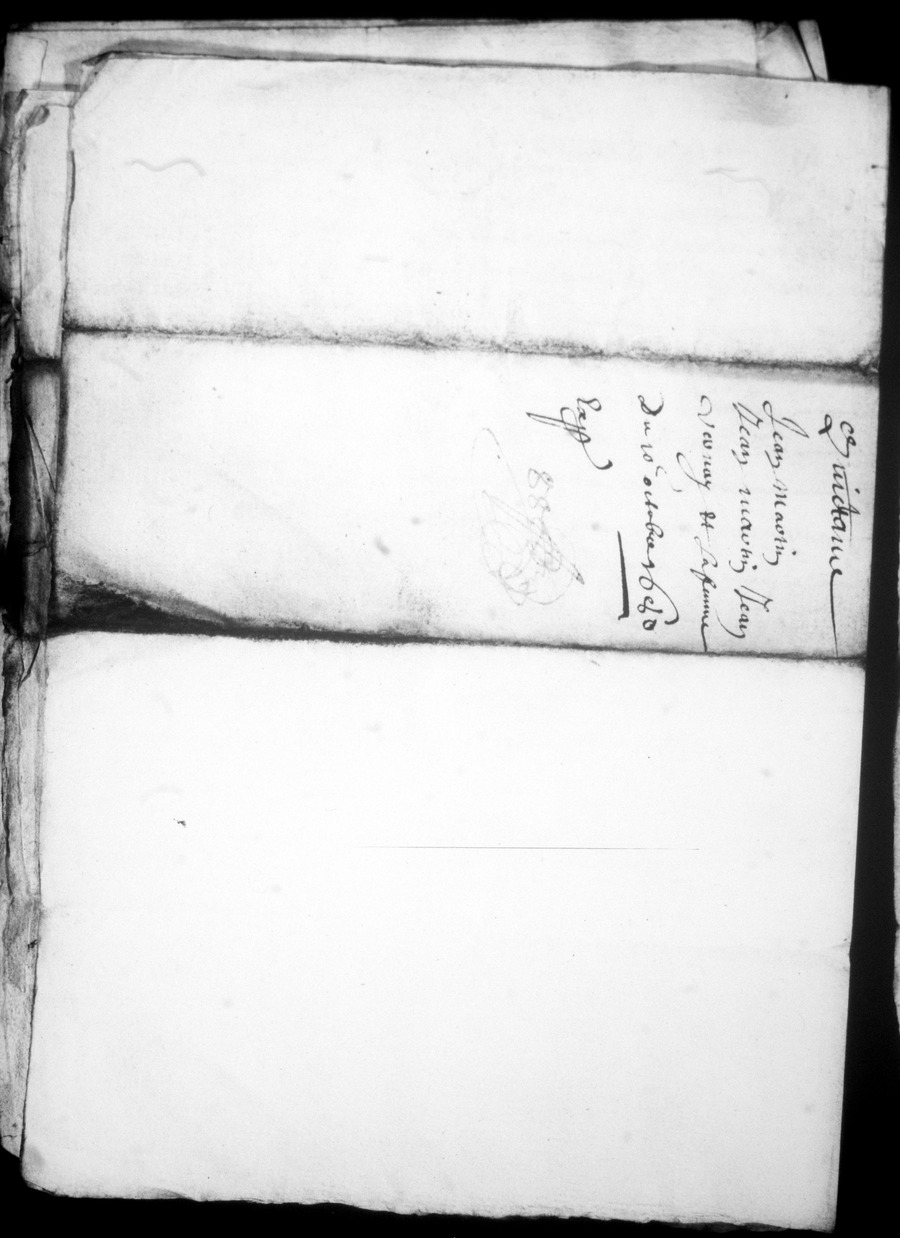 Quictance
Jean marin
Jean marin Jean
& sa femme
Du 10e octobre 1680
Exp
88